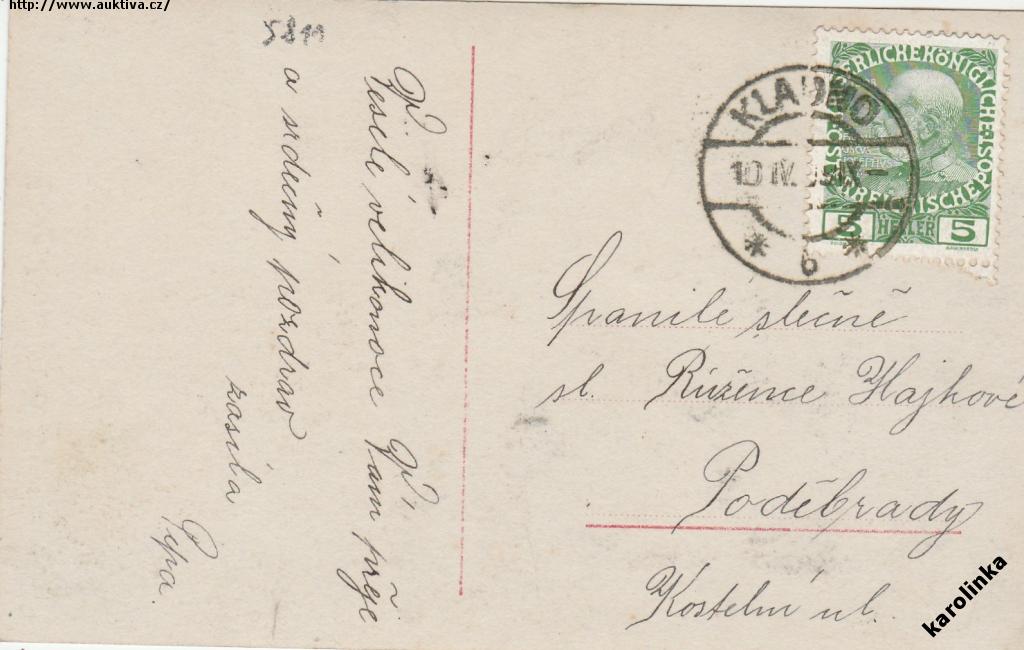 http://www.auktiva.cz/
5811
Veselé velikonoce Vám přeje
a srdečný pozdrav
zasílá
Pepa.
KLADNO
10 IV.
6
KREICHISCHE POST
5 HELLER 5
Spanilé slečně
sl. Růžence Hajkové
Poděbrady
Kostelní ul.
karolinka